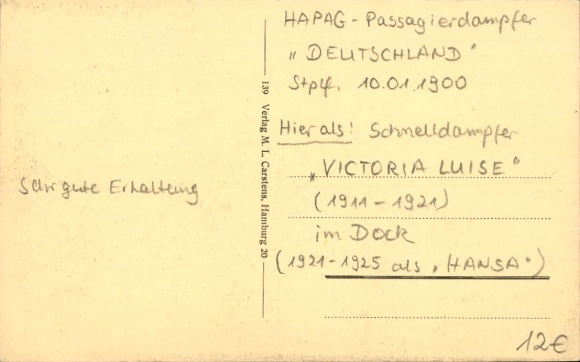 HAPAG - Passagierdampfer
„DEUTSCHLAND"
Stplf. 10.01.1900
Hier als: Schnelldampfer
„VICTORIA LUISE"
(1911 - 1921)
im Dock
(1921-1925 als „HANSA")
12€
139 Verlag M. L. Carstens, Hamburg 20
Sehr gute Erhaltung